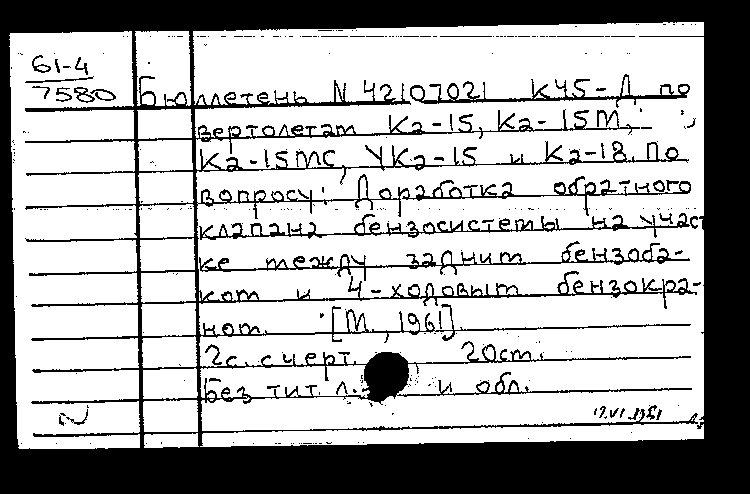 61-4
7580
Бюллетень N 42107021 К45-Д по
вертолетам Ка-15, Ка-15М,
Ка-15МС, УКа-15 и Ка-18. По
вопросу: Доработка обратного
клапана бензосистемы на участ
ке между заднит бензоба-
ком и 4-ходовым бензокра-
ном. [М., 1961].
2с. с черт. 20см.
Без тит. л. и обл.